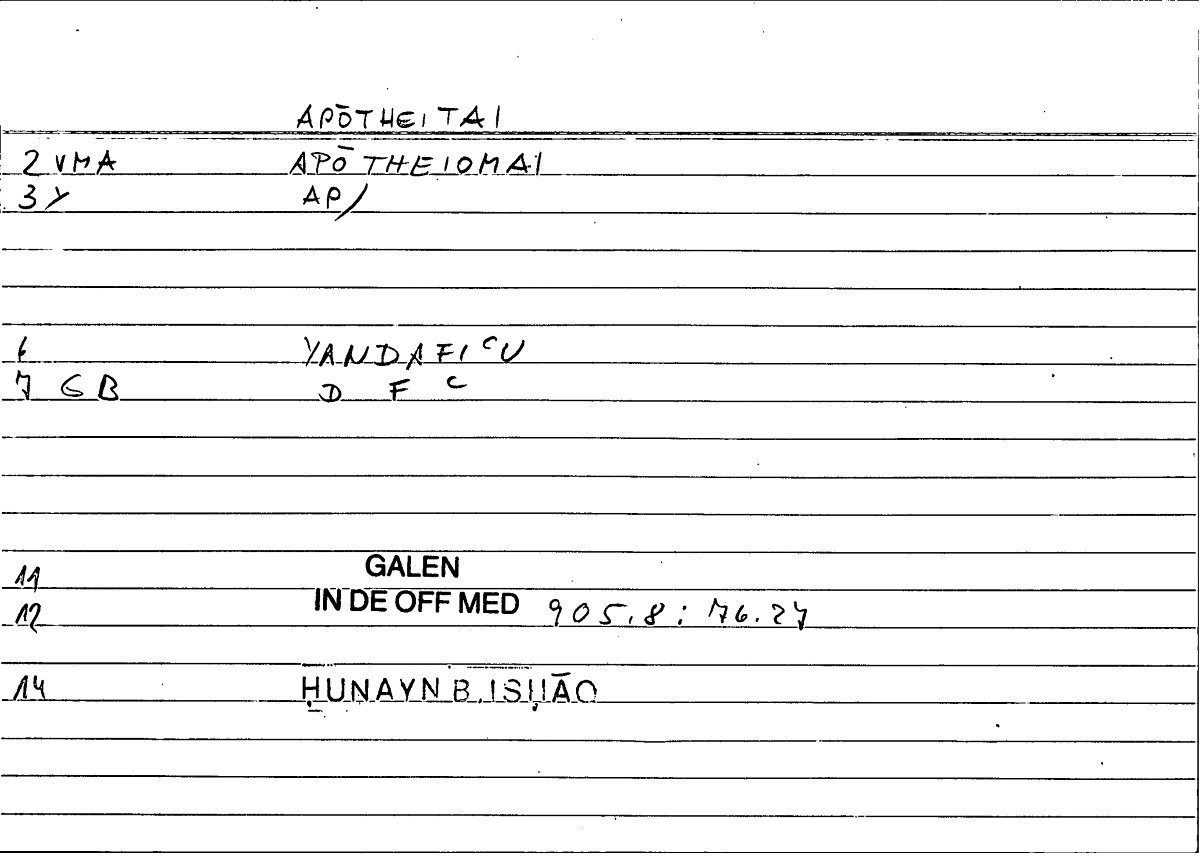 APŌTHEITAI
2 VMA APŌTHEIOMAI
3 Y AP/
6 YANDAFIᶜU
7 GB D F ᶜ
11 GALEN
12 IN DE OFF MED 905.8: 76.27
14 ḤUNAYN B. ISḤĀQ